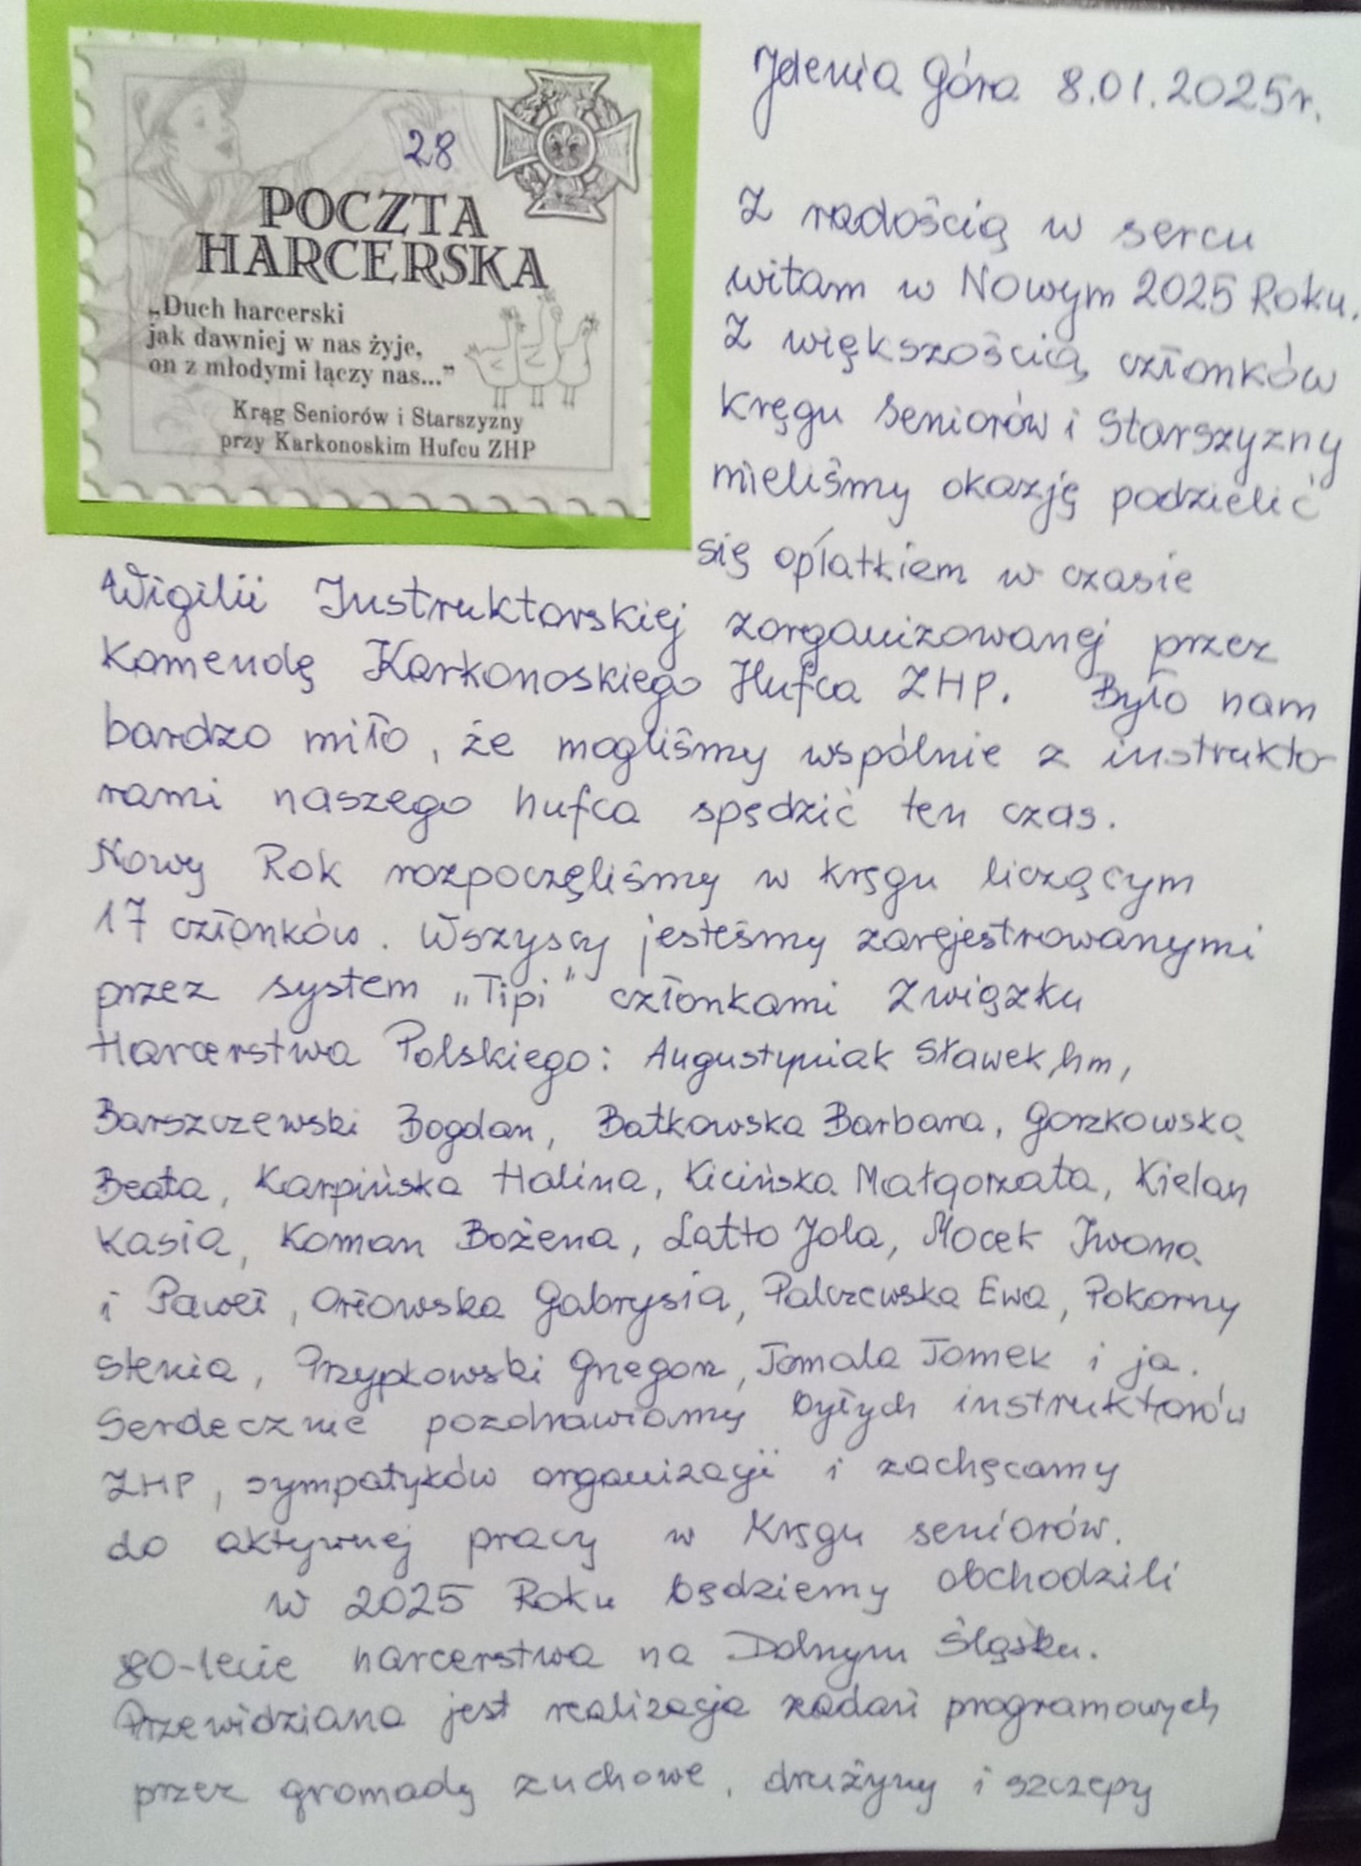 28
POCZTA
HARCERSKA
„Duch harcerski
jak dawniej w nas żyje,
on z młodymi łączy nas...”
Krąg Seniorów i Starszyzny
przy Karkonoskim Hufcu ZHP
Jelenia Góra 8.01.2025r.
Z radością w sercu
witam w Nowym 2025 Roku.
Z większością członków
Kręgu Seniorów i Starszyzny
mieliśmy okazję podzielić
się opłatkiem w czasie
Wigilii Instruktorskiej zorganizowanej przez
Komendę Karkonoskiego Hufca ZHP. Było nam
bardzo miło, że mogliśmy wspólnie z instrukto-
rami naszego hufca spędzić ten czas.
Nowy Rok rozpoczęliśmy w kręgu liczącym
17 członków. Wszyscy jesteśmy zarejestrowanymi
przez system „Tipi” członkami Związku
Harcerstwa Polskiego: Augustyniak Sławek hm,
Barszczewski Bogdan, Batkowska Barbara, Gorzkowska
Beata, Karpińska Halina, Kicińska Małgorzata, Kielan
Kasia, Koman Bożena, Latto Jola, Mocek Iwona
i Paweł, Orłowska Gabrysia, Palczewska Ewa, Pokorny
Stenia, Przypkowski Grzegorz, Tomala Tomek i ja.
Serdecznie pozdrawiamy byłych instruktorów
ZHP, sympatyków organizacji i zachęcamy
do aktywnej pracy w Kręgu seniorów.
W 2025 Roku będziemy obchodzili
80-lecie harcerstwa na Dolnym Śląsku.
Przewidziana jest realizacja zadań programowych
przez gromady zuchowe, drużyny i szczepy